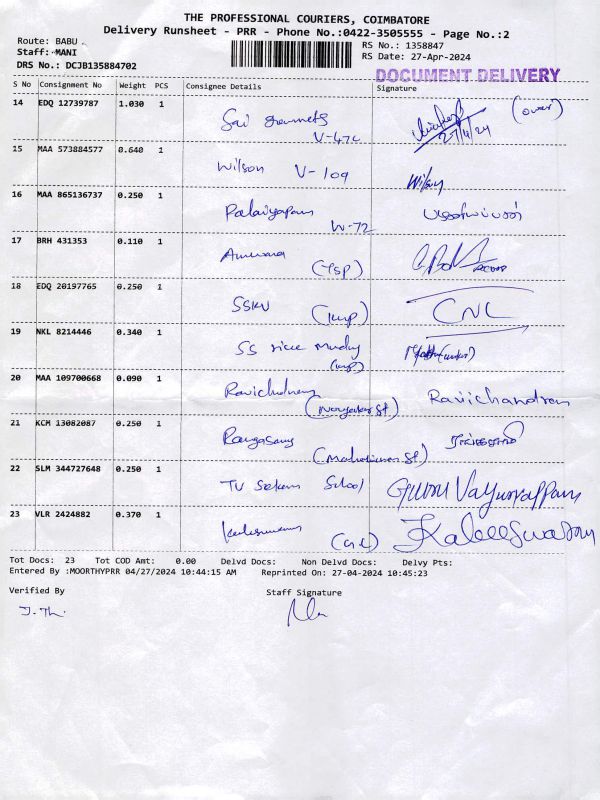 THE PROFESSIONAL COURIERS, COIMBATORE
Delivery Runsheet - PRR - Phone No.:0422-3505555 - Page No.:2
Route: BABU .
Staff: MANI
DRS No.: DCJB135884702
RS No.: 1358847
RS Date: 27-Apr-2024
DOCUMENT DELIVERY
S No Consignment No Weight PCS Consignee Details Signature
14 EDQ 12739787 1.030 1 Sai (owner)
V-47C 27/4/24
15 MAA 573884577 0.640 1 Wilson V-109 Wilson
16 MAA 865136737 0.250 1 Palaniyapam
W-72
17 BRH 431353 0.110 1
(TSP)
18 EDQ 20197765 0.250 1 SSKV (Imp) CNC
19 NKL 8214446 0.340 1 SS rice Mundy
(Imp)
20 MAA 109700668 0.090 1 Ravichdran Ravichandran
(Narayanan St)
21 KCM 13082087 0.250 1 Rangasamy
22 SLM 344727648 0.250 1 TV Sekaran School Guru Vayurappan
23 VLR 2424882 0.370 1 Kaleeswaran
Tot Docs: 23 Tot COD Amt: 0.00 Delvd Docs: Non Delvd Docs: Delvy Pts:
Entered By :MOORTHYPRR 04/27/2024 10:44:15 AM Reprinted On: 27-04-2024 10:45:23
Verified By Staff Signature